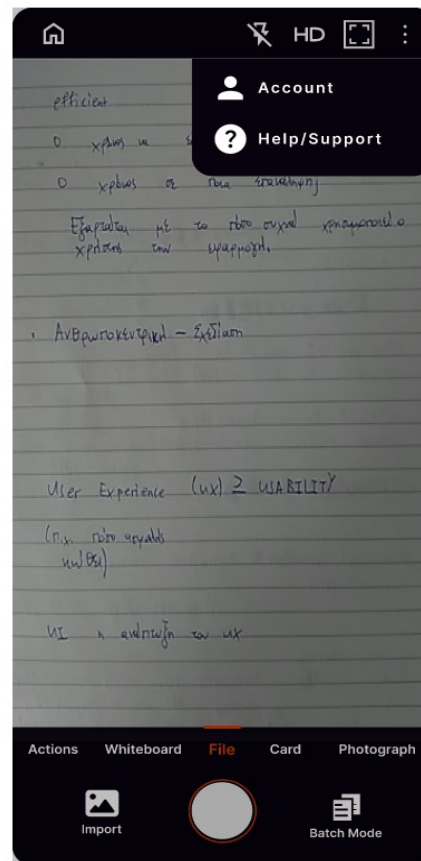 HD
Account
Help/Support
efficient
Ο χρόνος να
Ο χρόνος σε ποια επανάληψη
Εξαρτάται με το πόσο συχνά χρησιμοποιεί ο
χρήστης την εφαρμογή.
Ανθρωποκεντρική - Σχεδίαση
User Experience (UX) ≥ USABILITY
(π.χ. πόσο
UI η ανάπτυξη του UX
Actions Whiteboard File Card Photograph
Import
Batch Mode